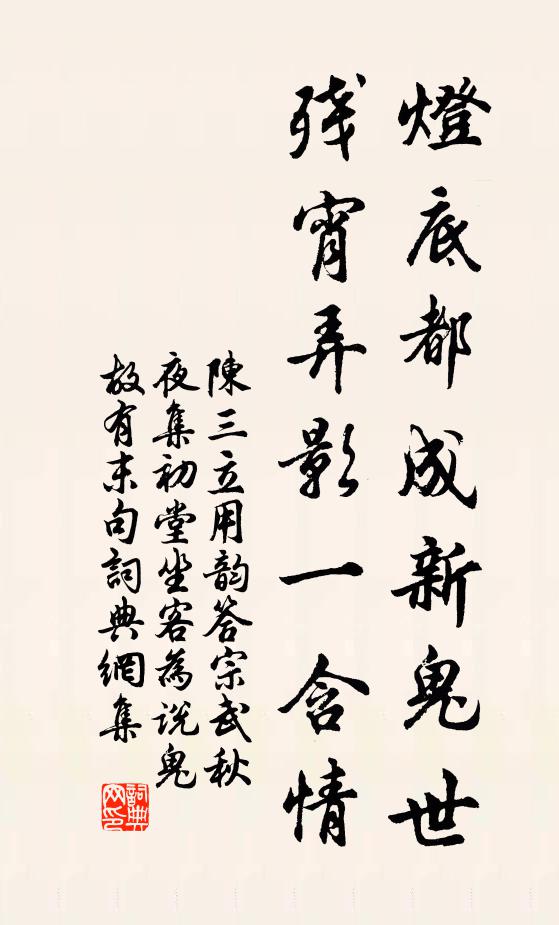 燈底都成新鬼世
残宵弄影一含情
陳三立用韵答宗武秋
夜集初堂坐客為説鬼
故有末句詞典網集
詞典網印